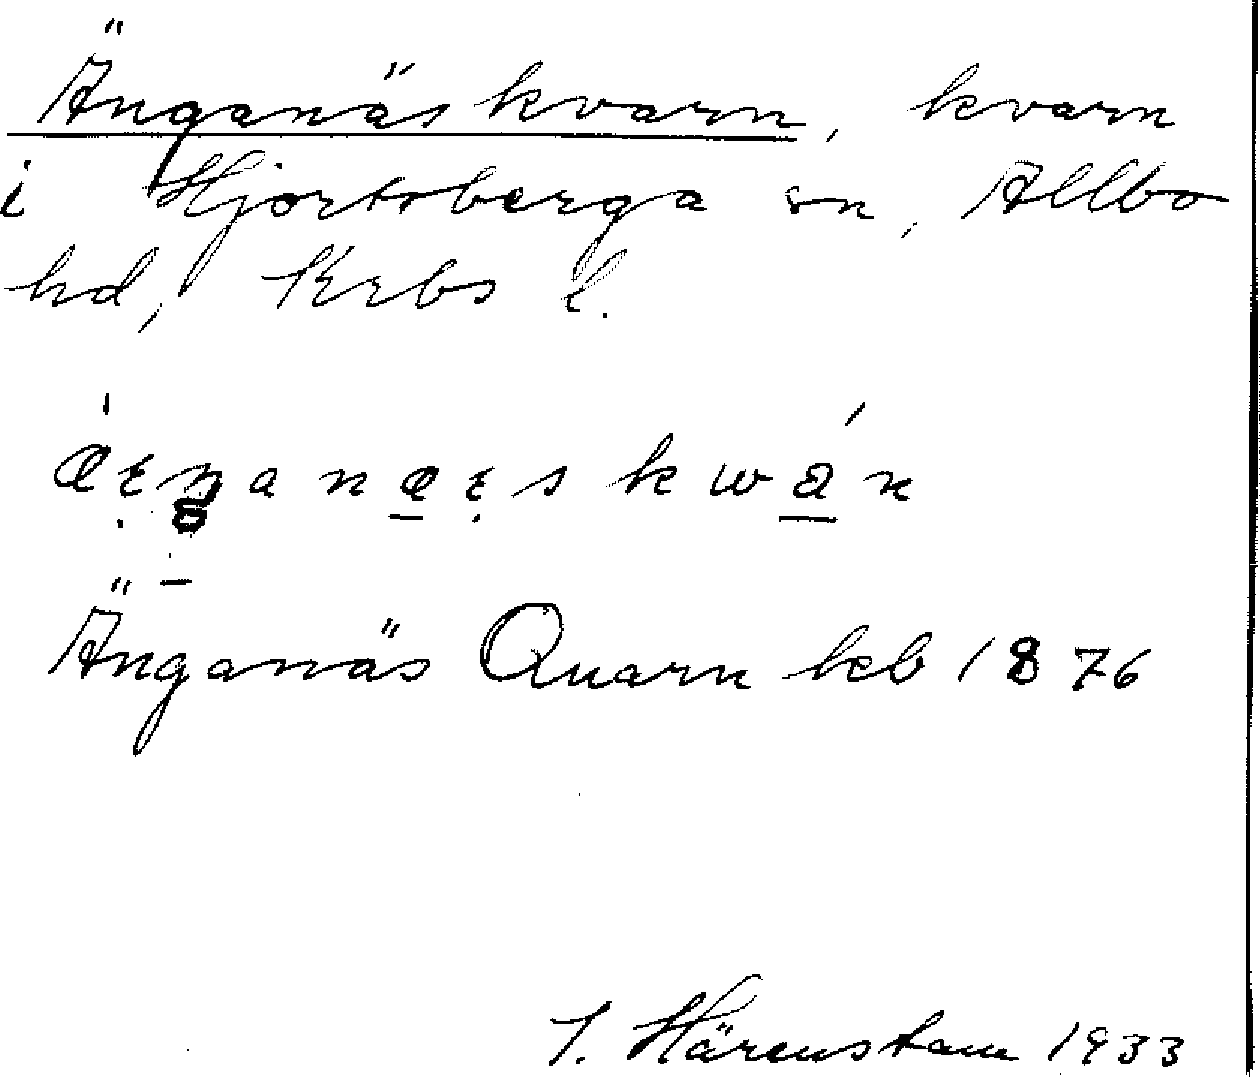 Änganäs kvarn, kvarn
i Hjortsberga sn, Allbo
hd, Krbs l.
Änganäs Quarn kb 1876
J. Härenstam 1933